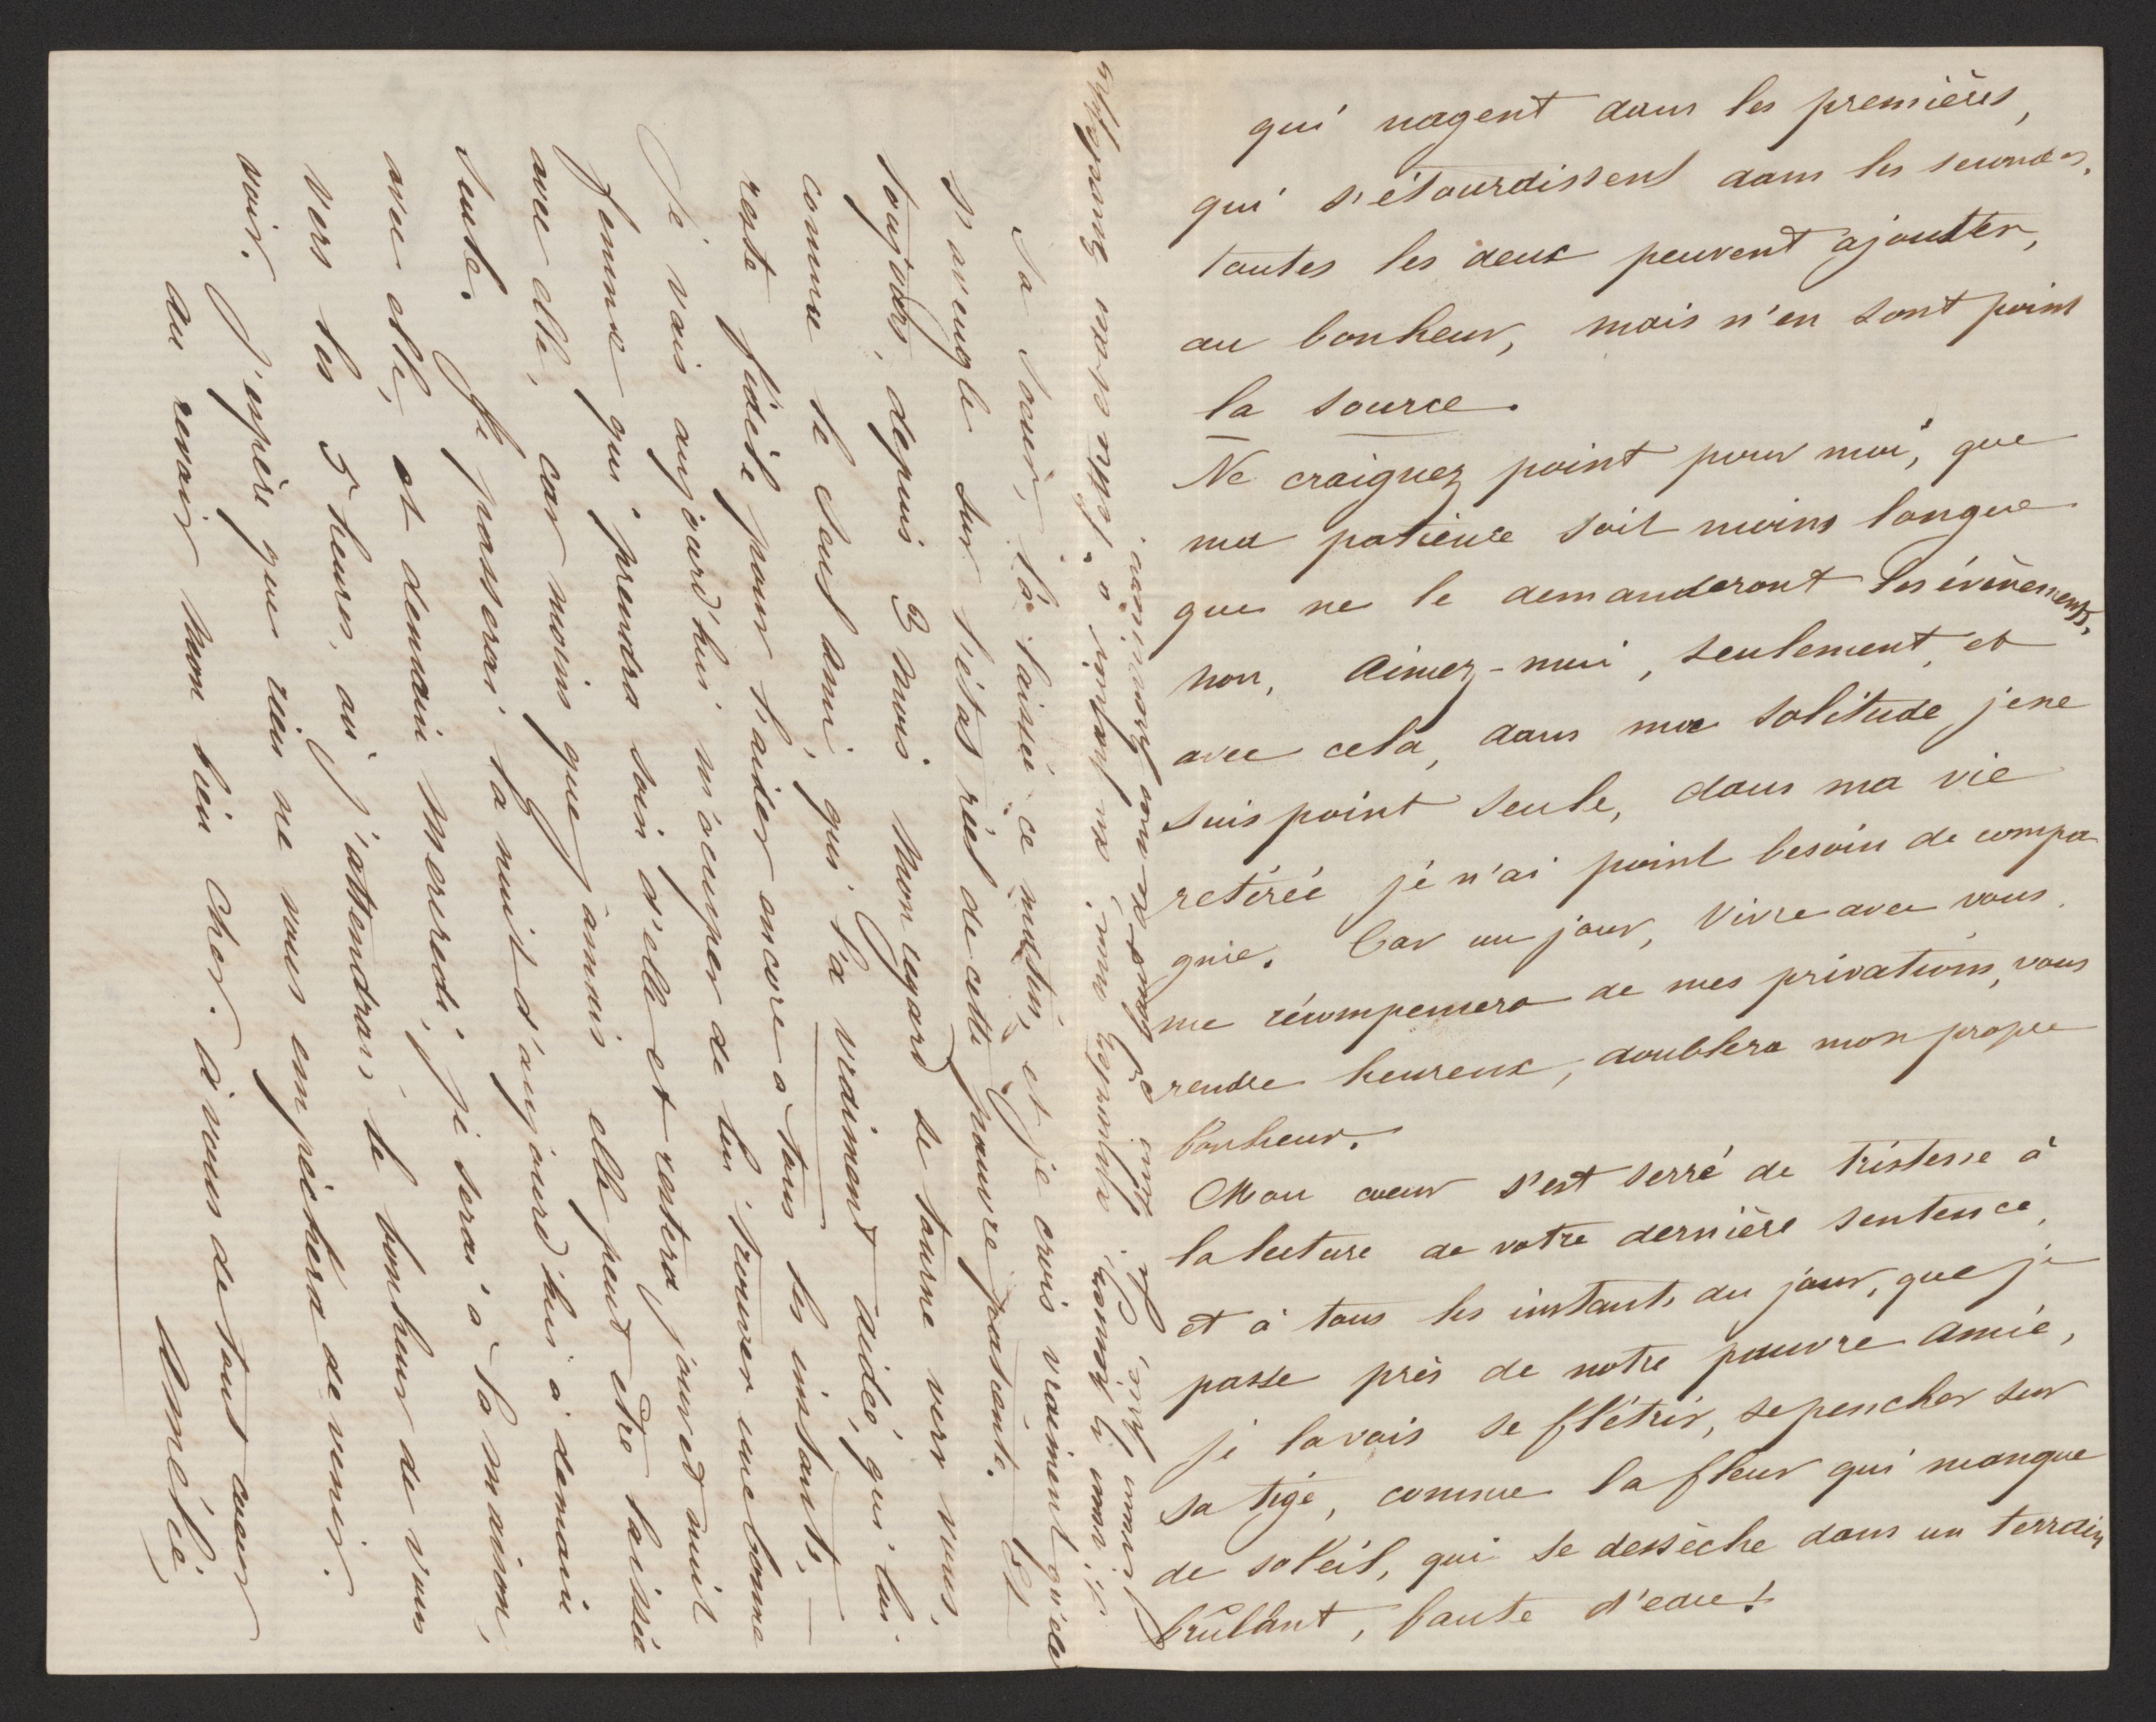 qui nagent dans les premières,
qui s'étourdissent dans les secondes,
toutes les deux peuvent ajouter,
au bonheur, mais n'en sont point
la source.
Ne craignez point pour moi, que
ma patience soit moins longue
que ne le demanderont les évènements,
non, Aimez-moi, seulement, et
avec cela, dans ma solitude, je ne
suis point seule, dans ma vie
retirée je n'ai point besoin de compa
gnie. Car un jour, vivre avec vous.
me récompensera de mes privations, vous
rendre heureux, doublera mon propre
bonheur.
Mon coeur s'est serré de tristesse à
la lecture de votre dernière sentence,
et à tous les instants du jour, que je
passe près de notre pauvre amie,
je la vois se flétrir, se pencher sur
sa tige, comme la fleur qui manque
de soleil, qui se dessèche dans un terrain
brûlant, faute d'eau!
Sa soeur, l'a laissée ce matin, et je crois vraiment qu'elle
s'aveugle sur l'état réel de cette pauvre patiente. Et
toujours, depuis 3 mois mon regard se tourne vers vous,
comme le seul ami, qui l'a vraiment aidée, qui lui
reste fidèle pour l'aider encore à tous les instants. —
Je vais aujourd'hui m'occuper de lui trouver une bonne
femme qui prendra soin d'elle et restera jour et nuit
avec elle, car moins que jamais elle peut être laissée
seule. Je passerai la nuit d'aujourd'hui à demain
avec elle, et demain mercredi, je serai à la maison,
vers les 5 heures, où j'attendrai, le bonheur de vous
voir. J'espère que rien ne vous empêchera de venir.
au revoir mon bien cher. à vous de tout coeur
Amélie